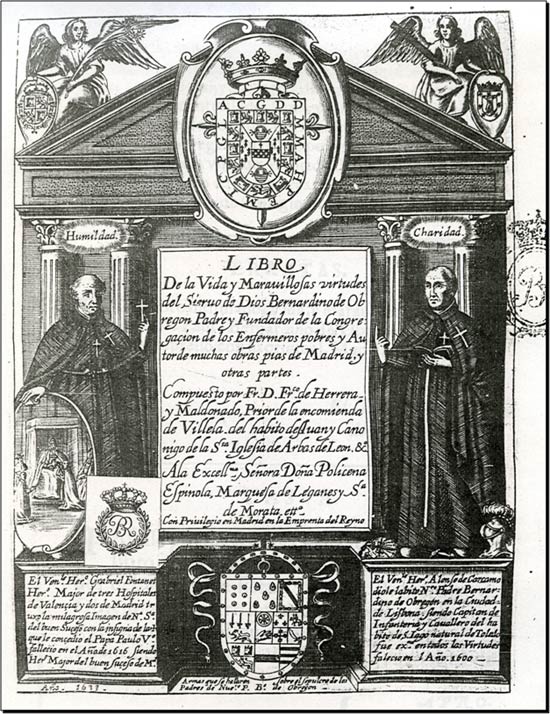 A C G D D
Humildad.
Charidad.
LIBRO
De la Vida y Maravillosas virtudes
del Sieruo de Dios Bernardino de Ob
regon Padre y Fundador de la Congre
gacion de los Enfermeros pobres y Au
tor de muchas obras pias de Madrid, y
otras partes.
Compuesto por Fr. D. Frco. de Herrera
y Maldonado, Prior de la encomienda
de Villela. del habito de s Iuan y Cano
nigo de la Sta. Iglesia de Arbas de Leon. &
Ala Excellma. Señora Doña Policena
Espinola, Marquesa de Leganes y Sa.
de Morata, ett.
Con Privilegio en Madrid en la Emprenta del Reyno
BR
El Vene. Hero. Grabriel Fntanet
Hero. Major de tres Hospitales
de Valençia y dos de Madrid tr
uxo la milagrosa Imagen de Na. Sa.
del buen Suceso con la insignia de
que le concedio el Papa Paulo Vo.
fallecio en el Año de 1616 siendo
Hero Major del buen suceso de Md.
El Vene. Hero. Alonso de Carcamo
diole labite No. Padre Bernar-
dino de Obregón en la Ciudad
de Lisboa, siendo Capitan de
Infanteria y Cavallero del ha
bito de S. Iago natural de Toledo
fue exo. en todas las Virtudes
falecio en l Año. 1600
Armas que se hallaron sobre el sepulcro de los
Padres de Nuo. P. Bo. de Obregon
Año. 1633